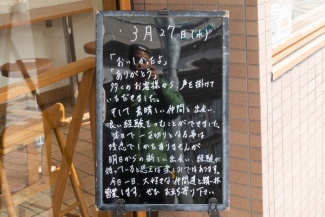 3月27日(水)
「おいしかったよ」
「ありがとう」
多くのお客様から、声を掛けて
いただきました。
そして素晴しい仲間と出会い、
良い経験をつむことができました。
本日で一区切りと
残念でしかたありませんが
明日からの新しい出会い、経験が
待っていると思えば楽しみではあります。
今日一日、大好きな仲間達と精一杯
営業します。ぜひお立ち寄り下さい。